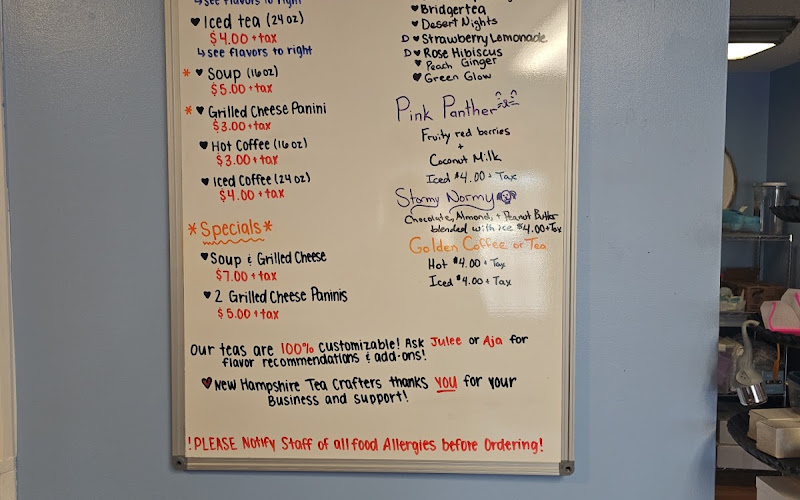 ↳see flavors to right
♥ Iced tea (24 oz)
$4.00 + tax
↳see flavors to right
* ♥ Soup (16oz)
$5.00 + tax
* ♥ Grilled Cheese Panini
$3.00 + tax
♥ Hot Coffee (16 oz)
$3.00 + tax
♥ Iced Coffee (24 oz)
$4.00 + tax
*Specials*
♥ Soup & Grilled Cheese
$7.00 + tax
♥ 2 Grilled Cheese Paninis
$5.00 + tax
♥ Bridgertea
♥ Desert Nights
D ♥ Strawberry Lemonade
D ♥ Rose Hibiscus
♥ Peach Ginger
♥ Green Glow
Pink Panther
Fruity red berries
+
Coconut Milk
Iced $4.00 + Tax
Stormy Normy
Chocolate, Almond, + Peanut Butter
blended with ice $4.00+Tax
Golden Coffee or Tea
Hot $4.00 + Tax
Iced $4.00 + Tax
Our teas are 100% customizable! Ask Julee or Aja for
flavor recommendations & add-ons!
♥ New Hampshire Tea Crafters thanks YOU for your
Business and support!
! PLEASE Notify Staff of all food Allergies before Ordering!